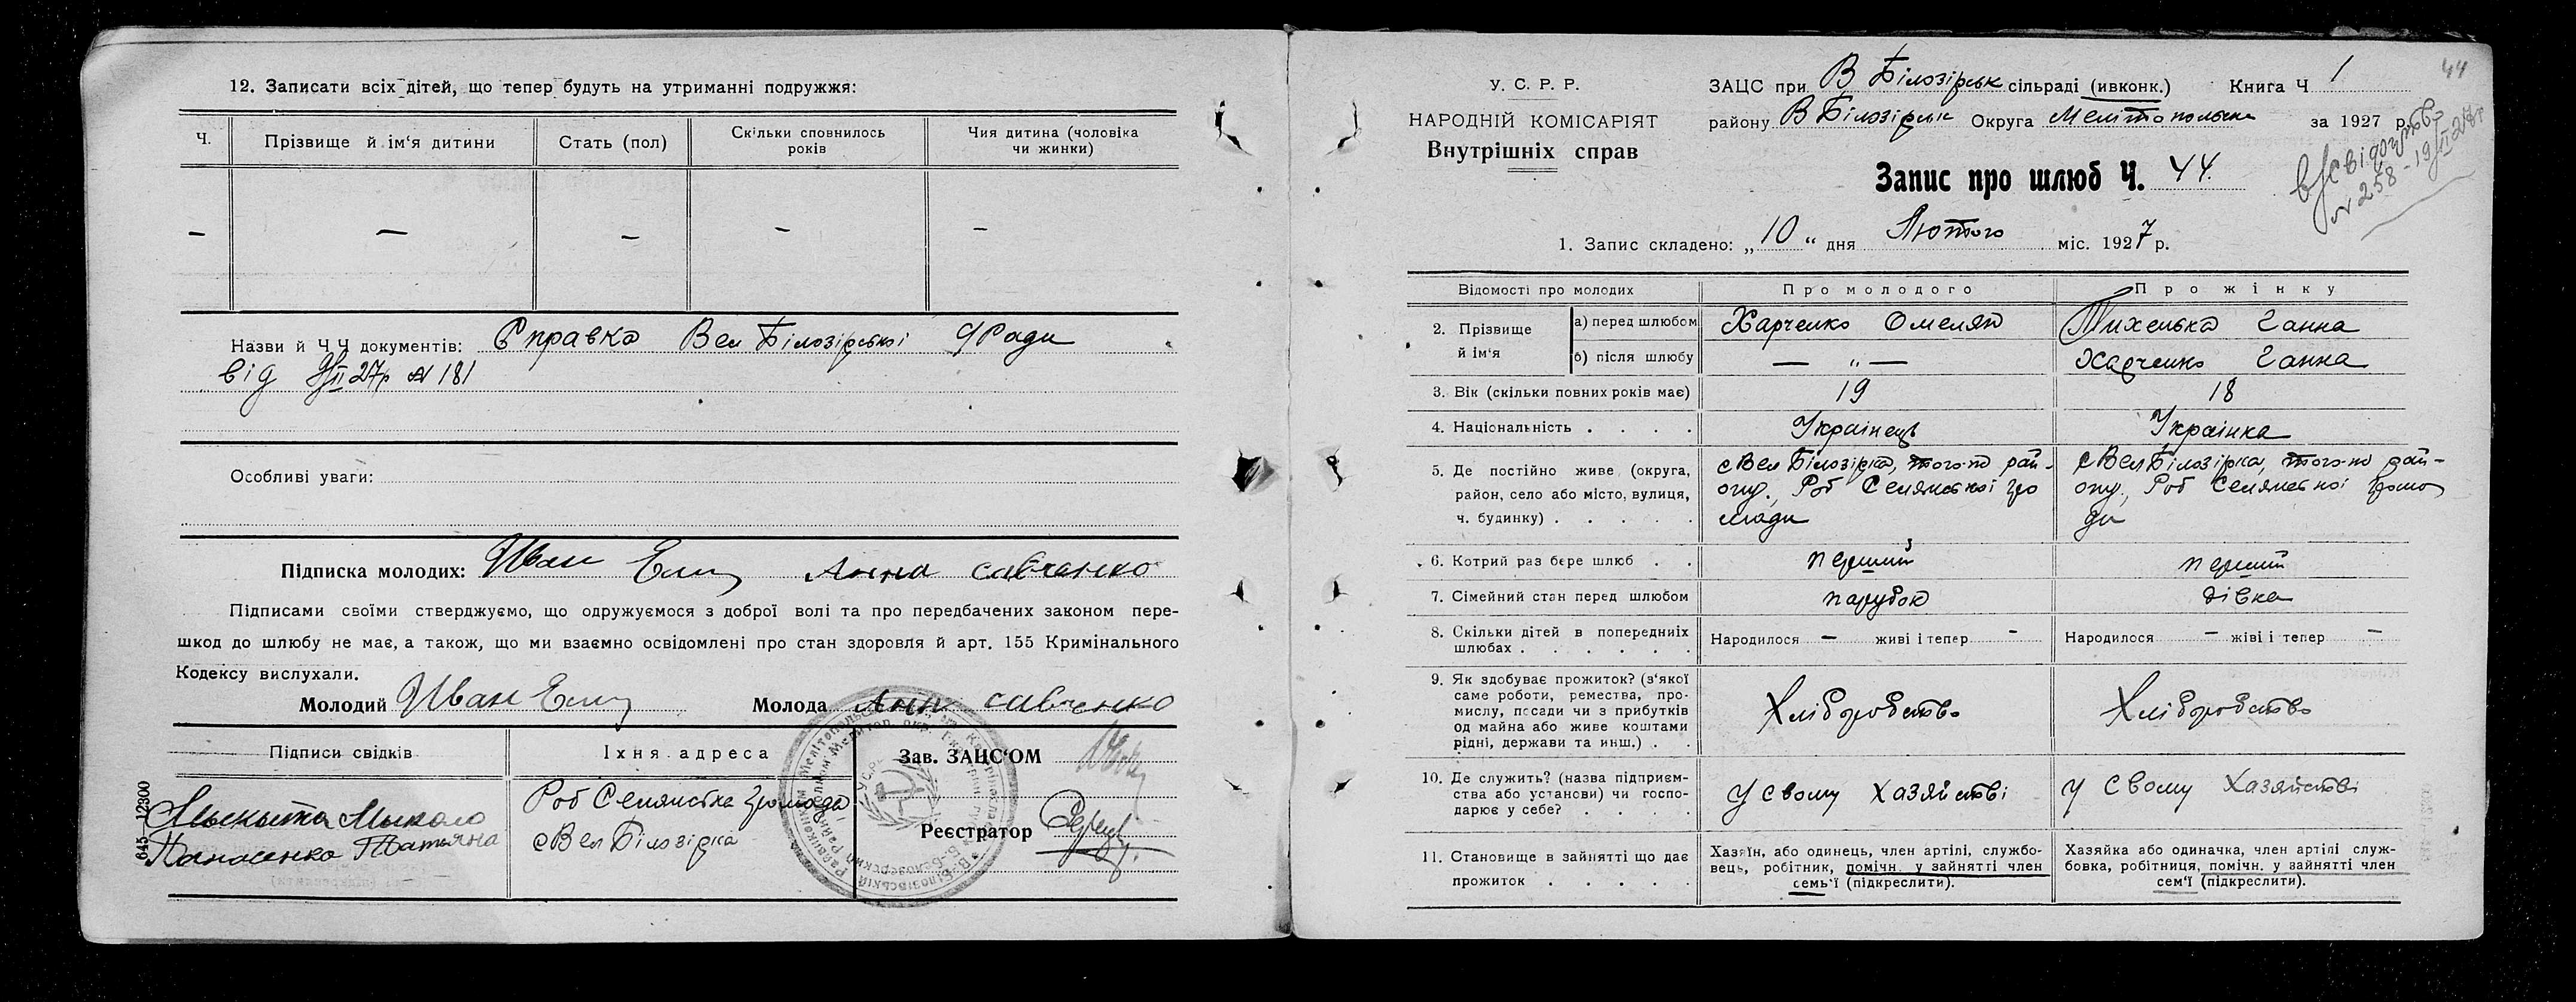 12. Записати всіх дітей, що тепер будуть на утриманні подружжя:
Ч. Прізвище й ім‘я дитини Стать (пол) Скільки сповнилось років Чия дитина (чоловіка чи жинки)
— — — — —
Назви й Ч Ч документів: Справка Вел Білозірської с/Ради
від 9/II 27р № 181
Особливі уваги:
Підписка молодих: Иван Анна савченко
Підписами своїми стверджуємо, що одружуємося з доброї волі та про передбачених законом пере-
шкод до шлюбу не має, а також, що ми взаємно освідомлені про стан здоровля й арт. 155 Кримінального
Кодексу вислухали.
Молодий Иван Молода Анн савченко
Підписи свідків Їхня адреса
Зав. ЗАЦС‘ОМ
Микола Роб Селянська громада
Панасенко Татьяна с Вел Білозірка
Реєстратор
645—12300
У. С. Р. Р.
НАРОДНІЙ КОМІСАРІЯТ
Внутрішніх справ
44
ЗАЦС при В Білозірськ сільраді (ивконк.) Книга Ч 1
району В Білозірськ Округа Мелітопольськ за 1927 р.
в/свідоцтво
№ 258 - 19/II 27 г
Запис про шлюб Ч. 44.
1. Запис складено: „10“ дня Лютого міс. 1927 р.
Відомості про молодих Про молодого Про жінку
2. Прізвище й ім‘я
а) перед шлюбом Харченко Омелян Тихенька Ганна
б) після шлюбу — „ — Харченко Ганна
3. Вік (скільки повних років має) 19 18
4. Національність . . . . Українець Українка
5. Де постійно живе (округа, район, село або місто, вулиця, ч. будинку) . . . . .
с Вел Білозірка, того-по рай-
ону., Роб Селянської гро
мади
с Вел Білозірка, того-по рай-
ону, Роб Селянської громо
ди
6. Котрий раз бере шлюб . . перший перший
7. Сімейний стан перед шлюбом парубок дівка
8. Скільки дітей в попередниіх шлюбах . . . . . . Народилося — живі і тепер — Народилося — жіві і тепер —
9. Як здобуває прожиток? (з‘якої
саме роботи, ремества, про-
мислу, посади чи з прибутків
од майна або живе коштами
рідні, держави та инш.) . .
Хліборобство Хліборобство
10. Де служить? (назва підприєм-
ства або установи) чи госпо-
дарює у себе? . . . .
у свому хазяйстві у свому хазяйстві
11. Становище в зайнятті що дає
прожиток . . . . .
Хазяїн, або одинець, член артілі, службо-
вець, робітник, помічн. у зайнятті член
семь‘ї (підкреслити).
Хазяйка або одиначка, член артілі служ-
бовка, робітниця, помічн. у зайнятті член
сем‘ї (підкреслити).